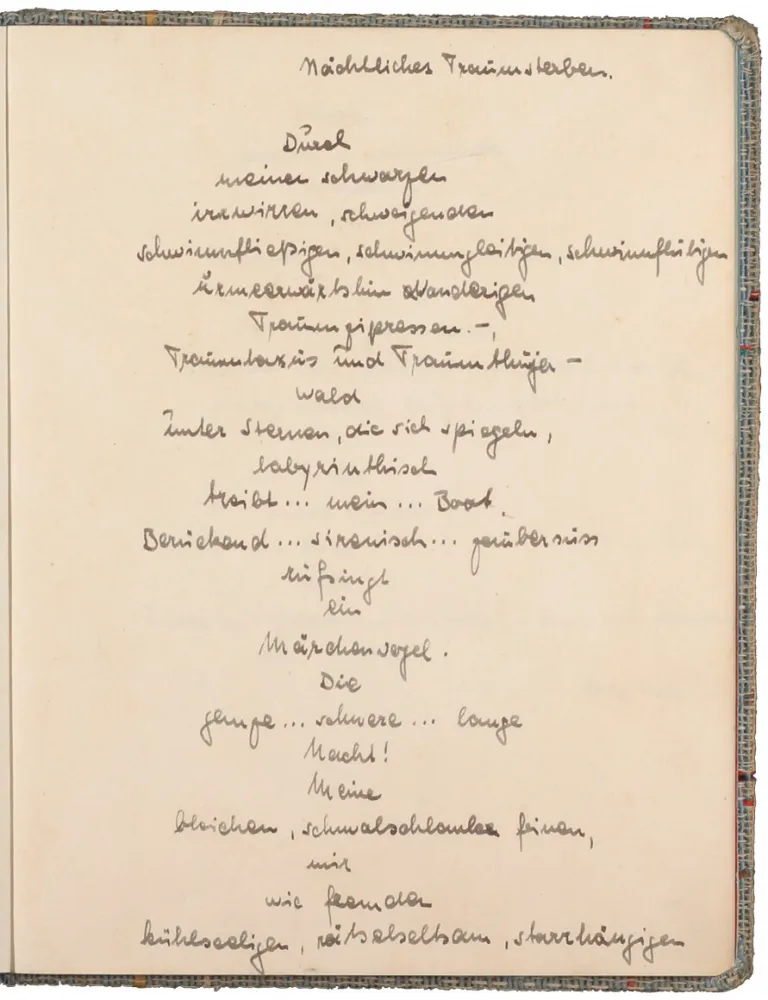 Nächtliches Traumsterben.
Durch
meinen schwarzen
irrwirren, schweigenden
schwimmfließigen, schwimmgleitigen, schwimmflutigen
urmeerwärtshin wandrigen
Traumzipressen.-,
Traumtaxus und Traumthuja -
wald
unter Sternen, die sich spiegeln,
labyrinthisch
treibt... mein... Boot.
Berückend... sirenisch... zaubersüss
rufsingt
ein
Märchenvogel.
Die
ganze... schwere... lange
Nacht!
Meine
bleichen, schmalschlanken feinen,
mir
wie fremden
kühlseeligen, rätselseltsam, starrhängigen